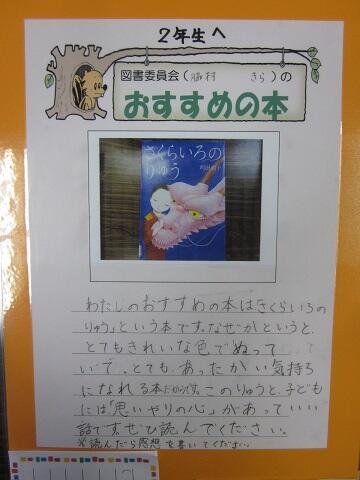 2年生へ
図書委員会(脇村 きら)の
おすすめの本
さくらいろの
りゅう
町田尚子
わたしのおすすめの本はさくらいろの
りゅうという本です。なぜかというと、
とてもきれいな色でぬって
いて、とても、あったかい気持ち
になれる本だからです。このりゅうと、子ども
には「思いやりの心」があっていい
話です。ぜひ読んでください。
※読んだら感想を書いてください。